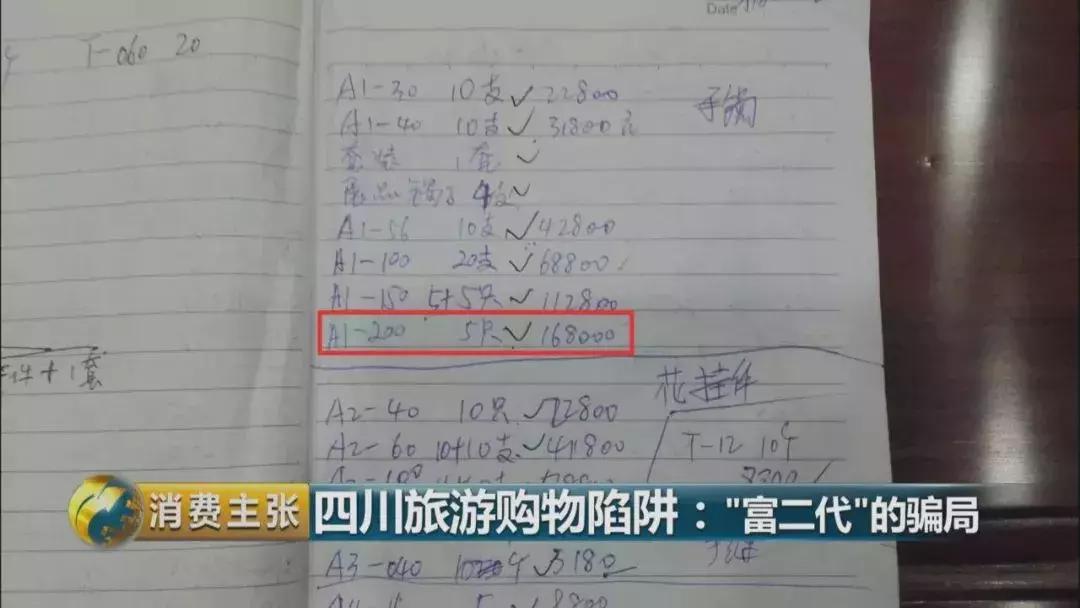 Date
T-060 20
A1-30 10支 ✓ 22800
手镯
A1-40 10支 ✓ 31800元
套装 1套 ✓
展品镯子 4支 ✓
A1-56 10支 ✓ 42800
A1-100 20支 ✓ 68800
A1-150 5+5只 ✓ 112800
A1-200 5只 ✓ 168000
件+1套
花挂件
A2-40 10只 ✓
A2-60 10+10支 ✓
T-12 10个
消费主张
四川旅游购物陷阱："富二代"的骗局
A3-040